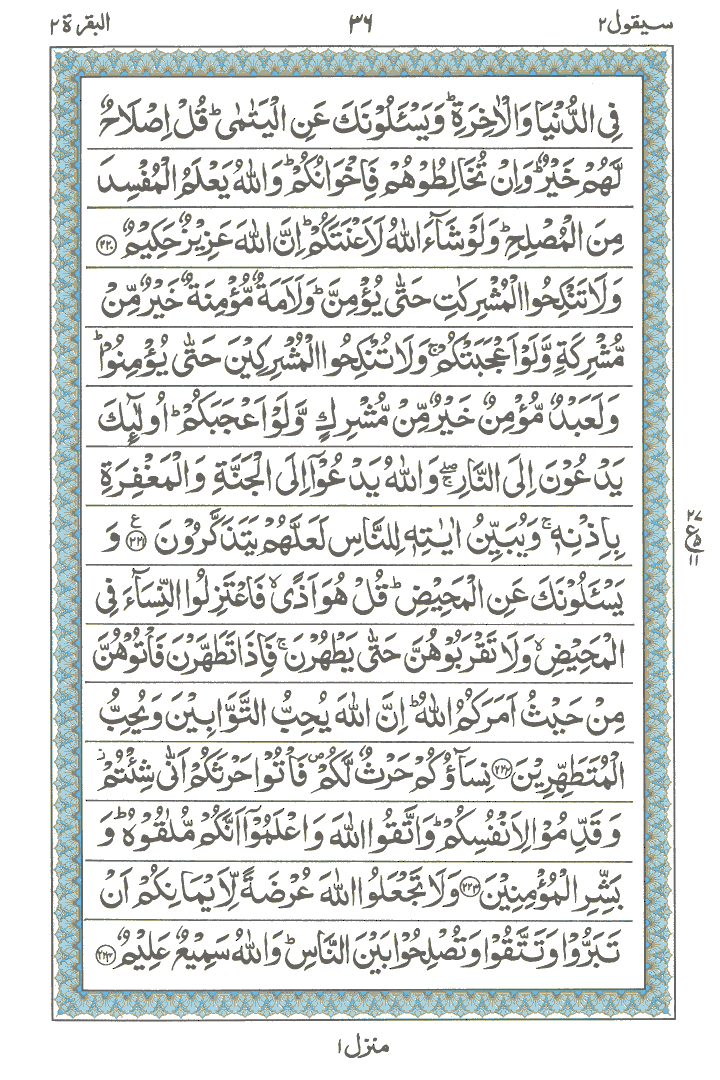 سيقول٢ ٣٦ البقرة٢
فِى الدُّنۡيَا وَالۡاٰخِرَةِ ؕ وَيَسۡـَٔلُوۡنَكَ عَنِ الۡيَتٰمٰى ؕ قُلۡ اِصۡلَاحٌ
لَّهُمۡ خَيۡرٌ ؕ وَاِنۡ تُخَالِطُوۡهُمۡ فَاِخۡوَانُكُمۡ ؕ وَاللّٰهُ يَعۡلَمُ الۡمُفۡسِدَ
مِنَ الۡمُصۡلِحِ ؕ وَلَوۡ شَآءَ اللّٰهُ لَاَعۡنَتَكُمۡ ؕ اِنَّ اللّٰهَ عَزِيۡزٌ حَكِيۡمٌ ﴿٢٢٠﴾
وَلَا تَنۡكِحُوا الۡمُشۡرِكٰتِ حَتّٰى يُؤۡمِنَّ ؕ وَلَاَمَةٌ مُّؤۡمِنَةٌ خَيۡرٌ مِّنۡ
مُّشۡرِكَةٍ وَّلَوۡ اَعۡجَبَتۡكُمۡ ۚ وَلَا تُنۡكِحُوا الۡمُشۡرِكِيۡنَ حَتّٰى يُؤۡمِنُوۡا ؕ
وَلَعَبۡدٌ مُّؤۡمِنٌ خَيۡرٌ مِّنۡ مُّشۡرِكٍ وَّلَوۡ اَعۡجَبَكُمۡ ؕ اُولٰٓئِكَ
يَدۡعُوۡنَ اِلَى النَّارِ ۖۚ وَاللّٰهُ يَدۡعُوۡٓا اِلَى الۡجَنَّةِ وَالۡمَغۡفِرَةِ
بِاِذۡنِهٖ ۚ وَيُبَيِّنُ اٰيٰتِهٖ لِلنَّاسِ لَعَلَّهُمۡ يَتَذَكَّرُوۡنَ ﴿٢٢١﴾ ع وَ
٢٧ ع ٥ ١١
يَسۡـَٔلُوۡنَكَ عَنِ الۡمَحِيۡضِ ؕ قُلۡ هُوَ اَذًى ۙ فَاعۡتَزِلُوا النِّسَآءَ فِى
الۡمَحِيۡضِ ۙ وَلَا تَقۡرَبُوۡهُنَّ حَتّٰى يَطۡهُرۡنَ ۚ فَاِذَا تَطَهَّرۡنَ فَاۡتُوۡهُنَّ
مِنۡ حَيۡثُ اَمَرَكُمُ اللّٰهُ ؕ اِنَّ اللّٰهَ يُحِبُّ التَّوَّابِيۡنَ وَيُحِبُّ
الۡمُتَطَهِّرِيۡنَ ﴿٢٢٢﴾ نِسَآؤُكُمۡ حَرۡثٌ لَّكُمۡ ۖ فَاۡتُوۡا حَرۡثَكُمۡ اَنّٰى شِئۡتُمۡ ز
وَقَدِّمُوۡا لِاَنۡفُسِكُمۡ ؕ وَاتَّقُوا اللّٰهَ وَاعۡلَمُوۡٓا اَنَّكُمۡ مُّلٰقُوۡهُ ؕ وَ
بَشِّرِ الۡمُؤۡمِنِيۡنَ ﴿٢٢٣﴾ وَلَا تَجۡعَلُوا اللّٰهَ عُرۡضَةً لِّاَيۡمَانِكُمۡ اَنۡ
تَبَرُّوۡا وَتَتَّقُوۡا وَتُصۡلِحُوۡا بَيۡنَ النَّاسِ ؕ وَاللّٰهُ سَمِيۡعٌ عَلِيۡمٌ ﴿٢٢٤﴾
منزل١